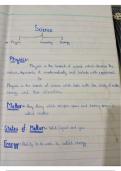 Science
Physics Chemistry Biology
Physics:-
Physics is the branch of science which
nature, mathematically and
Or
Physics is the branch of science which deals with the study of matter
energy and their interaction.
Matter:- Any thing which occupies space and having mass is
called matter.
States of Matter:- Solid, liquid and gas.
Energy:- Ability to do work is called energy.